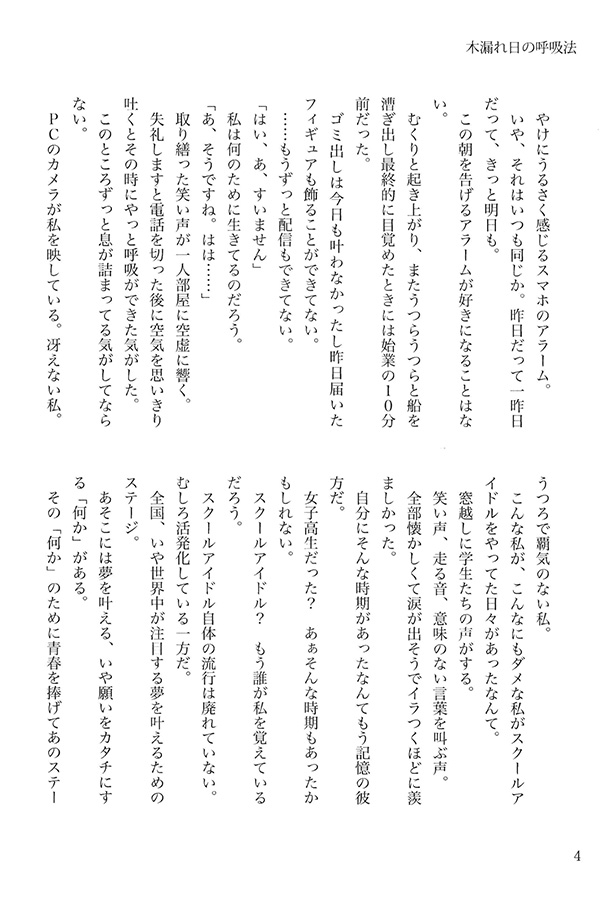 木漏れ日の呼吸法
やけにうるさく感じるスマホのアラーム。
いや、それはいつも同じか。昨日だって一昨日
だって、きっと明日も。
この朝を告げるアラームが好きになることはな
い。
むくりと起き上がり、またうつらうつらと船を
漕ぎ出し最終的に目覚めたときには始業の10分
前だった。
ゴミ出しは今日も叶わなかったし昨日届いた
フィギュアも飾ることができてない。
……もうずっと配信もできてない。
「はい、あ、すいません」
私は何のために生きてるのだろう。
「あ、そうですね。はは……」
取り繕った笑い声が一人部屋に空虚に響く。
失礼しますと電話を切った後に空気を思いきり
吐くとその時にやっと呼吸ができた気がした。
このところずっと息が詰まってる気がしてなら
ない。
PCのカメラが私を映している。冴えない私。
うつろで覇気のない私。
こんな私が、こんなにもダメな私がスクールア
イドルをやってた日々があったなんて。
窓越しに学生たちの声がする。
笑い声、走る音、意味のない言葉を叫ぶ声。
全部懐かしくて涙が出そうでイラつくほどに羨
ましかった。
自分にそんな時期があったなんてもう記憶の彼
方だ。
女子高生だった？　あぁそんな時期もあったか
もしれない。
スクールアイドル？　もう誰が私を覚えている
だろう。
スクールアイドル自体の流行は廃れていない。
むしろ活発化している一方だ。
全国、いや世界中が注目する夢を叶えるための
ステージ。
あそこには夢を叶える、いや願いをカタチにす
る「何か」がある。
その「何か」のために青春を捧げてあのステー
4